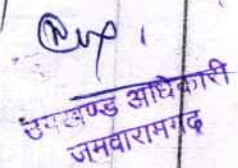 उपखण्ड अधिकारी
जमवारामगढ़